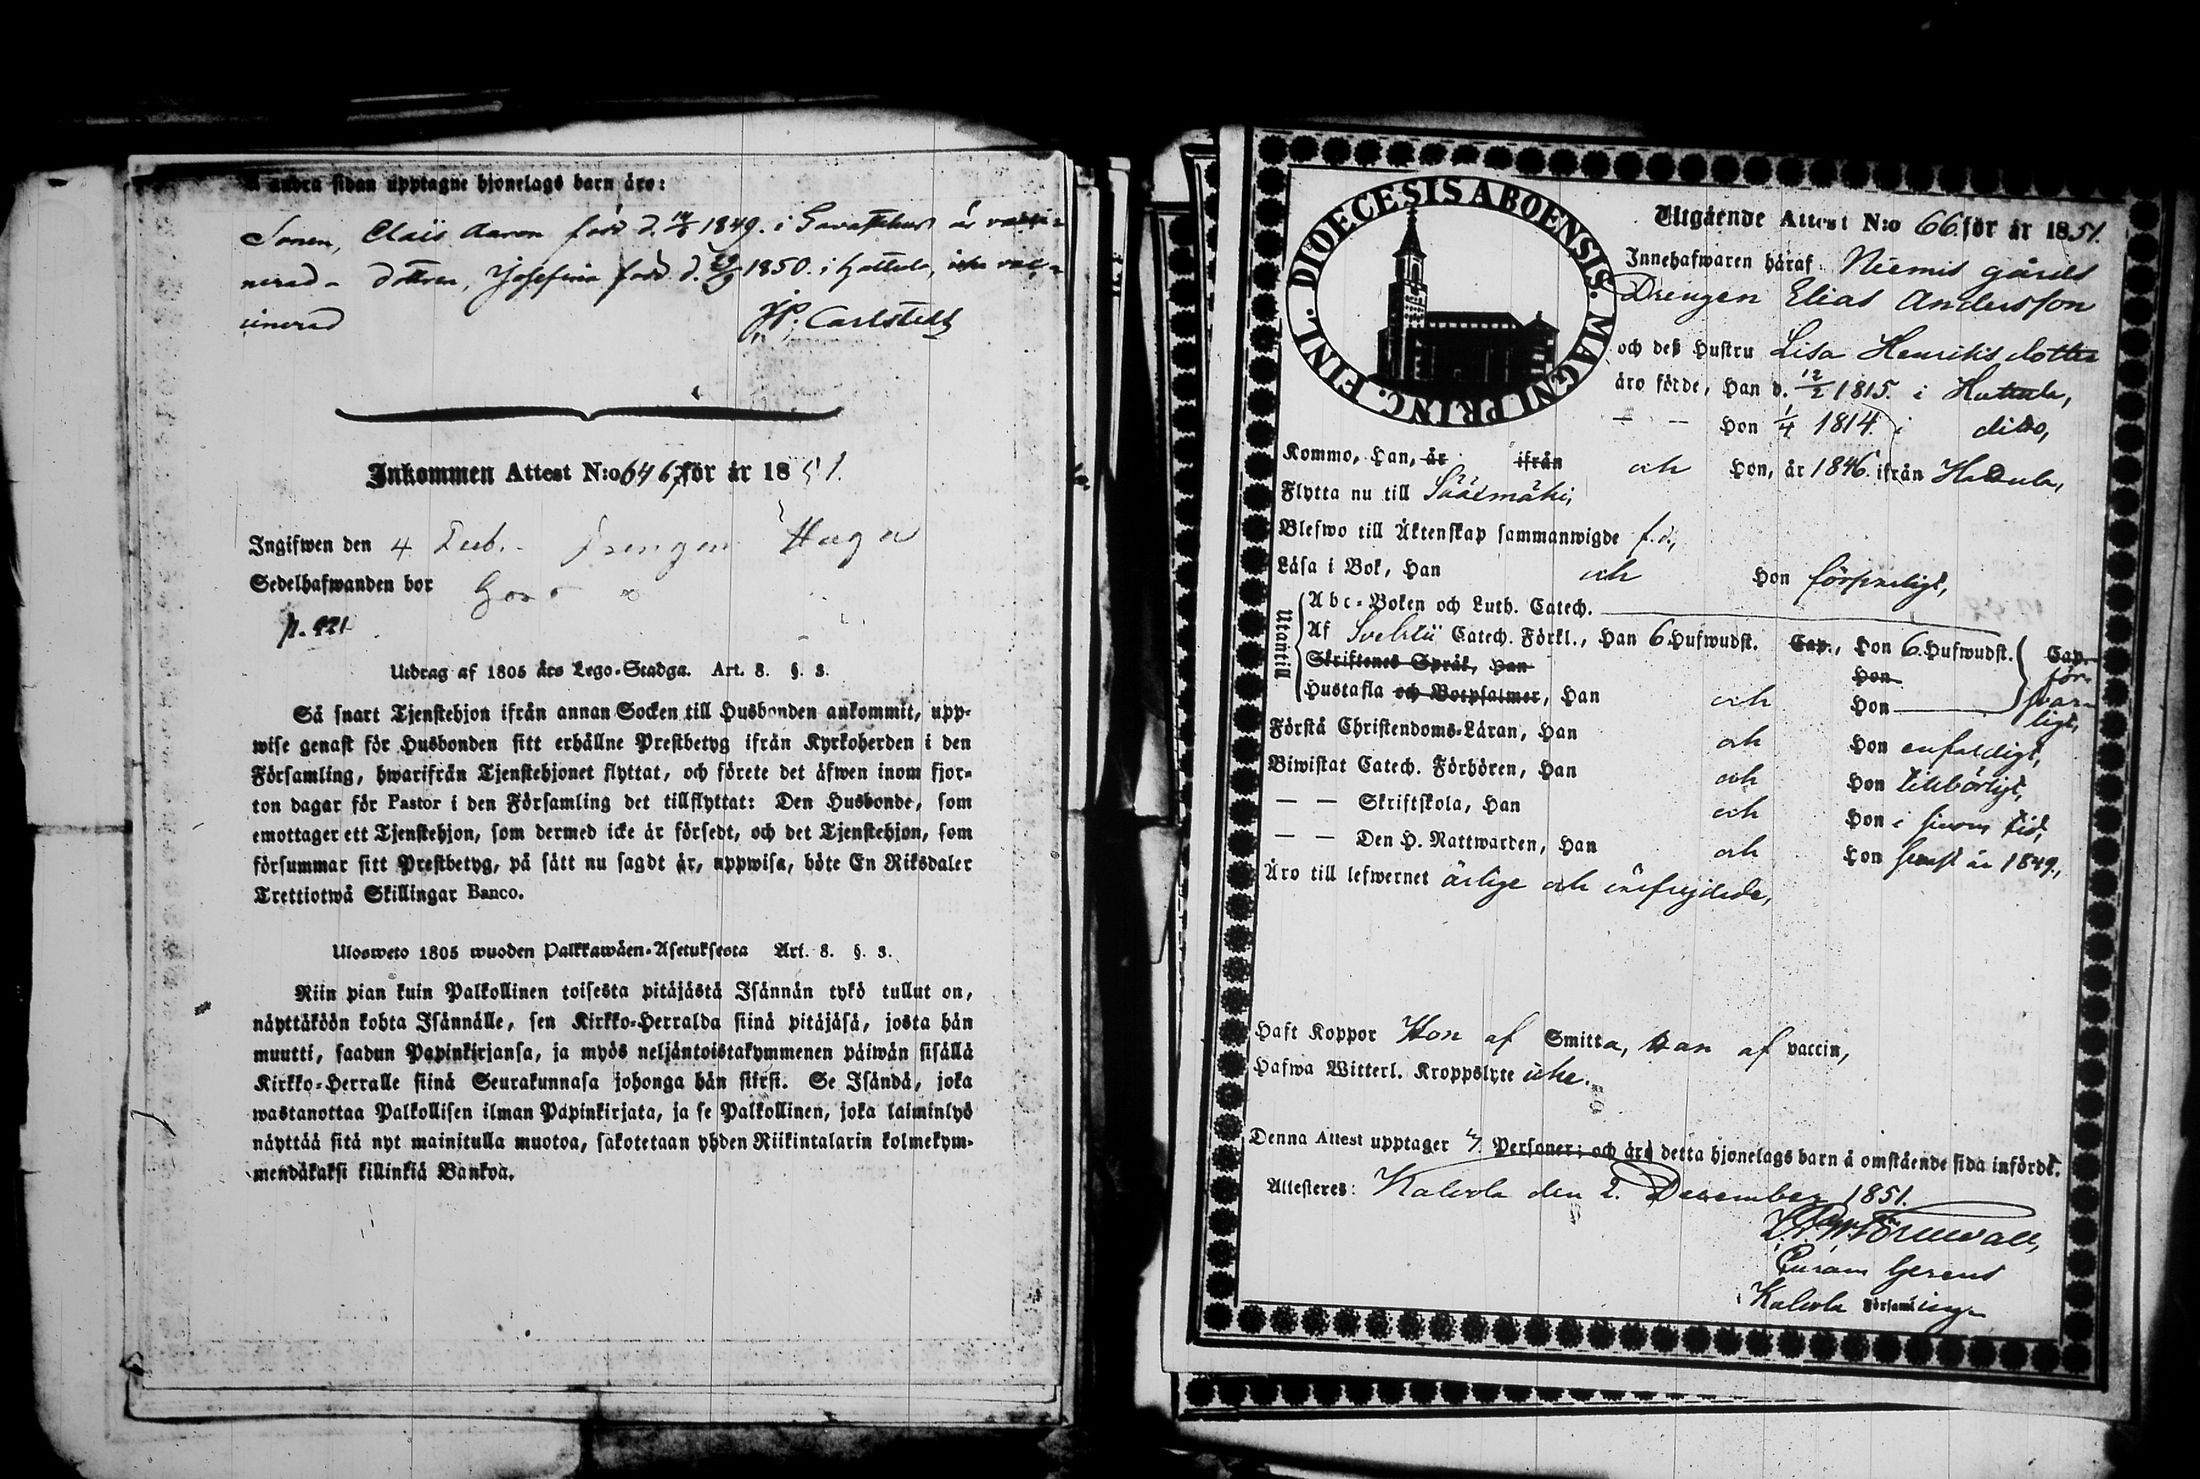 andra sidan upptagne hjonelags barn äro:
Sonen, Claës Aaron född d. 1849. i Tavastehus är vacci-
nerad - dottren, Josefina född d. 1850. i Hattula, icke vac-
cinerad
Carlstedt
Inkommen Attest N:o 64 67 för år 1851.
Ingifwen den 4 Drengen
Sedelhafwanden bor
p. 421
Utdrag af 1805 års Lego-Stadga. Art. 8. §. 3.
Så snart Tjenstehjon ifrån annan Socken till Husbonden ankommit, upp-
wise genast för Husbonden sitt erhållne Prestbetyg ifrån Kyrkoherden i den
Församling, hwarifrån Tjenstehjonet flyttat, och förete det äfwen inom fjor-
ton dagar för Pastor i den Församling det tillflyttat: Den Husbonde, som
emottager ett Tjenstehjon, som dermed icke är försedt, och det Tjenstehjon, som
försummar sitt Prestbetyg, på sätt nu sagdt är, uppwisa, böte En Riksdaler
Trettiotwå Skillingar Banco.
Ulosweto 1805 wuoden Palkkawäen-Asetuksesta Art. 8. §. 3.
Niin pian kuin Palkollinen toisesta pitäjästä Isännän tykö tullut on,
näyttäköön kohta Isännälle, sen Kirkko-Herralda siinä pitäjäsä, josta hän
muutti, saadun Papinkirjansa, ja myös neljäntoistakymmenen päiwän sisällä
Kirkko-Herralle siinä Seurakunnasa johonga hän siirsi. Se Isändä, joka
wastanottaa Palkollisen ilman Papinkirjata, ja se Palkollinen, joka laiminlyö
näyttää sitä nyt mainitulla muotoa, sakotetaan yhden Riikintalarin kolmekym-
mendäkaksi killinkiä Bankoa.
DIOECESIS ABOENSIS. MAGNI PRINC. FINL.
Utgående Attest N:o 66. för år 1851.
Innehafwaren häraf Niemis gårds
Drengen Elias Andersson
och deß Hustru Lisa Henriksdotter
äro födde, Han d. 12/2 1815. i Hattula,
— — Hon 1/4 1814. i dito,
Kommo, Han, år ifrån och Hon, år 1846. ifrån Hattula,
Flytta nu till Sääxmäki,
Blefwo till Äktenskap sammanwigde
Läsa i Bok, Han och Hon försvarligt,
Utantill
Abc-Boken och Luth. Catech.
Af Svebilii Catech. Förkl., Han 6 Hufwudst. Cap., Hon 6. Hufwudst. Cap.
Skriftenes Språk, Han Hon för-
Hustafla och Botpsalmer, Han och Hon svar-
ligt,
Förstå Christendoms-Läran, Han och Hon enfaldigt,
Biwistat Catech. Förhören, Han och Hon tillbörligt,
— — Skriftskola, Han och Hon i sinom tid,
— — Den H. Nattwarden, Han och Hon senast år 1849.,
Äro till lefwernet ärlige och oberyktade,
Haft Koppor Hon af Smitta, Han af vaccin,
Hafwa Witterl. Kroppslyte icke.
Denna Attest upptager 4 Personer; och äro detta hjonelags barn å omstående sida införde.
Attesteras: Kalvola den 2. December 1851.
Curam Gerens
Kalvola Församlings